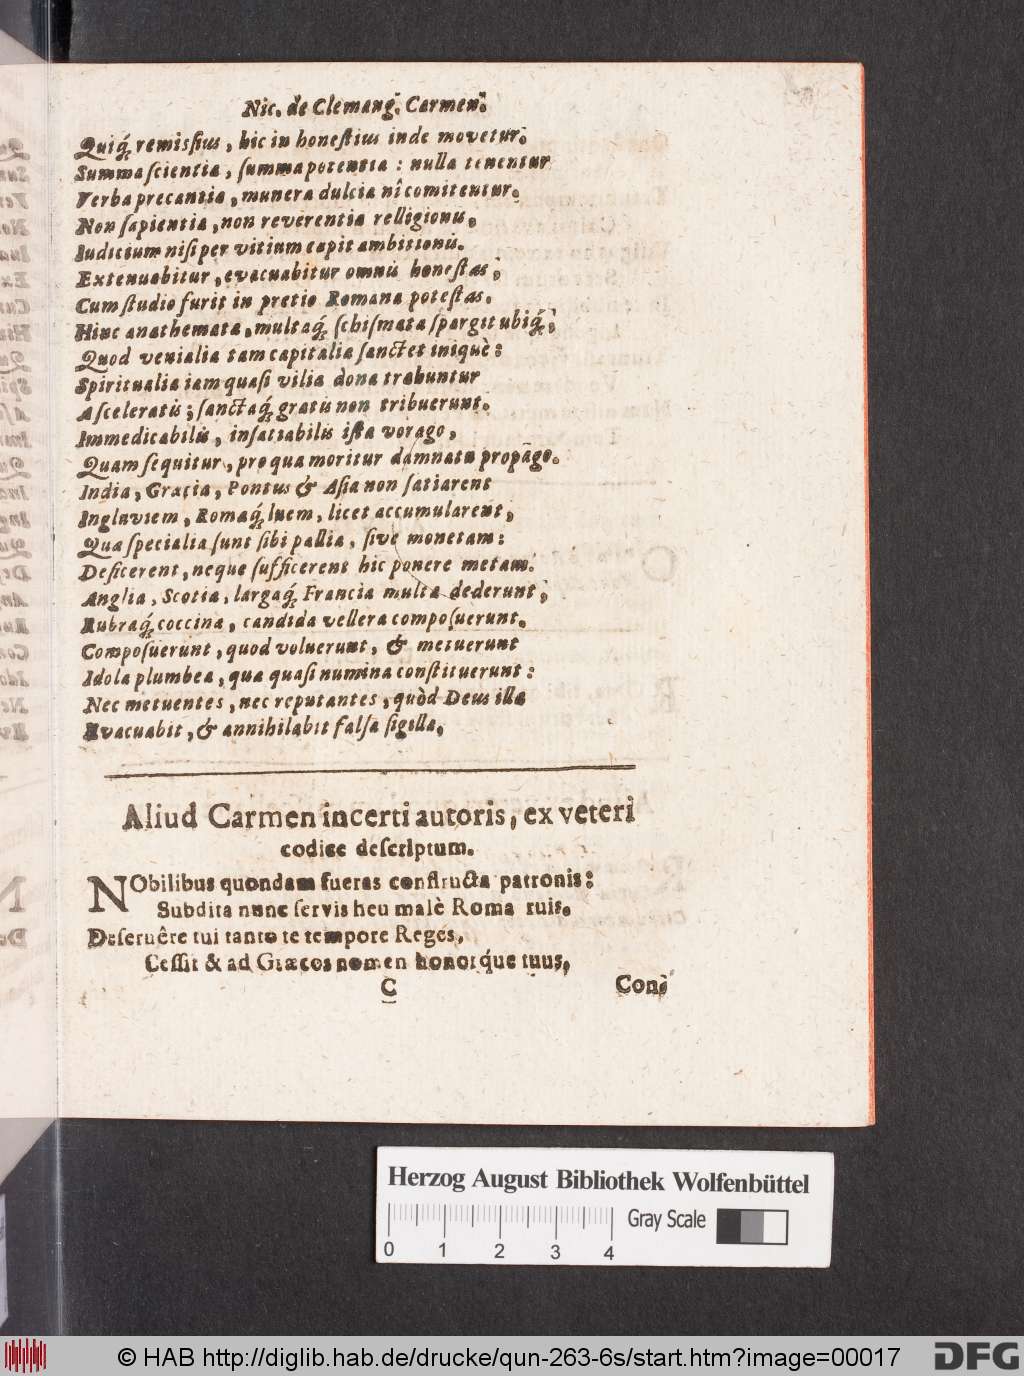 Nic. de Clemang. Carmen.
Quiq́; remissius, hic in honestius inde movetur.
Summa scientia, summa potentia : nulla tenentur
Verba precantia, munera dulcia nî comitentur.
Non sapientia, non reverentia relligionis,
Iudicium nisi per vitium capit ambitionis.
Extenuabitur, evacuabitur omnis honestas;
Cum studio furit in pretio Romana potestas.
Hinc anathemata, multaq́; schismata spargit ubiq́;;
Quod venialia tam capitalia sanctet iniquè:
Spiritualia iam quasi vilia dona trahuntur
A sceleratis; sanctaq́; gratis non tribuerunt.
Immedicabilis, insatiabilis ista vorago,
Quam sequitur, pro qua moritur damnata propãgo.
India, Græcia, Pontus & Asia non satiarent
Ingluviem, Romaq́; luem, licet accumularent,
Qua specialia sunt sibi pallia, sive monetam:
Deficerent, neque sufficerent hic ponere metam.
Anglia, Scotia, largaq́; Francia multa dederunt;
Rubraq́; coccina, candida vellera composuerunt.
Composuerunt, quod voluerunt, & metuerunt
Idola plumbea, qua quasi numina constituerunt:
Nec metuentes, nec reputantes, quòd Deus illa
Evacuabit, & annihilabit falsa sigilla.
Aliud Carmen incerti autoris, ex veteri
codice descriptum.
NObilibus quondam fueras constructa patronis:
Subdita nunc servis heu malè Roma ruis.
Deseruêre tui tanto te tempore Reges,
Cessit & ad Græcos nomen honorq́ue tuus,
C
Con-
Herzog August Bibliothek Wolfenbüttel
Gray Scale
0 1 2 3 4
© HAB http://diglib.hab.de/drucke/qun-263-6s/start.htm?image=00017
DFG